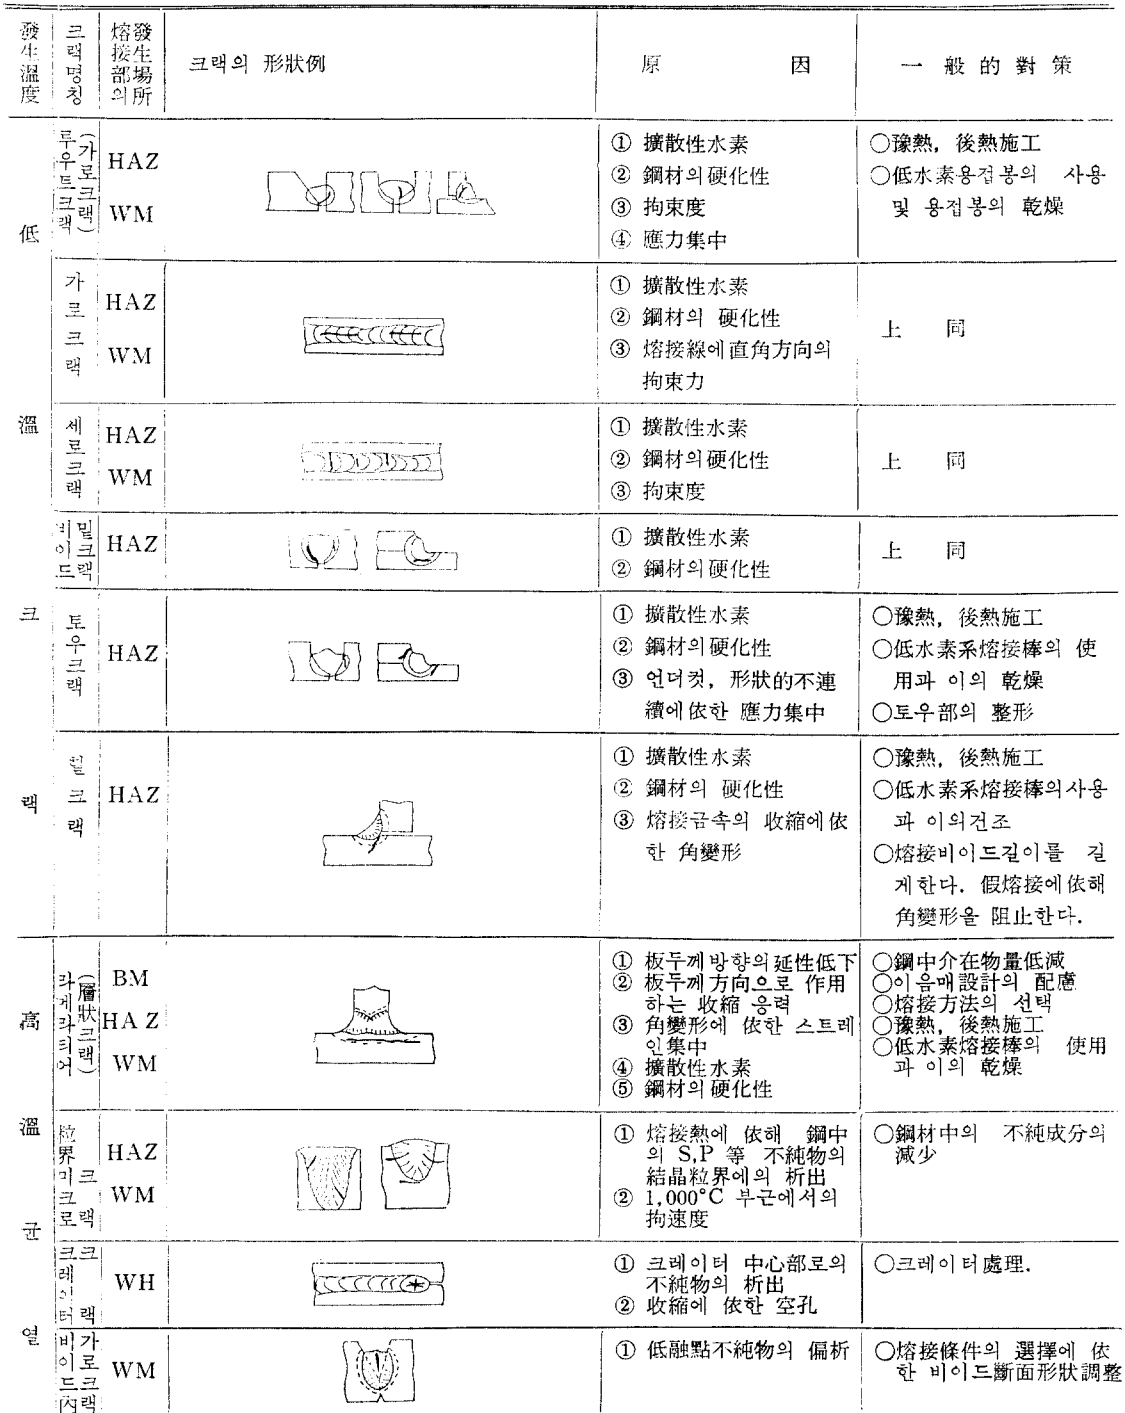 發生溫度 크랙명칭 熔接部의 發生場所 크랙의 形狀例 原 因 一般的對策
低溫크랙
루우트크랙 (가로크랙)
HAZ
WM
① 擴散性水素
② 鋼材의硬化性
③ 拘束度
④ 應力集中
○豫熱, 後熱施工
○低水素용접봉의 사용
및 용접봉의 乾燥
가로크랙
HAZ
WM
① 擴散性水素
② 鋼材의 硬化性
③ 熔接線에直角方向의
拘束力
上 同
세로크랙
HAZ
WM
① 擴散性水素
② 鋼材의硬化性
③ 拘束度
上 同
비이드밑크랙
HAZ
① 擴散性水素
② 鋼材의硬化性
上 同
토우크랙
HAZ
① 擴散性水素
② 鋼材의硬化性
③ 언더컷, 形狀的不連
續에依한 應力集中
○豫熱, 後熱施工
○低水素系熔接棒의 使
用과 이의 乾燥
○토우部의 整形
힐크랙
HAZ
① 擴散性水素
② 鋼材의 硬化性
③ 熔接금속의 收縮에依
한 角變形
○豫熱, 後熱施工
○低水素系熔接棒의사용
과 이의건조
○熔接비이드길이를 길
게한다. 假熔接에依해
角變形을 阻止한다.
高溫균열
라메라티어 (層狀크랙)
BM
HAZ
WM
① 板두께방향의延性低下
② 板두께方向으로 作用
하는 收縮 응력
③ 角變形에 依한 스트레
인集中
④ 擴散性水素
⑤ 鋼材의硬化性
○鋼中介在物量低減
○이음매設計의 配慮
○熔接方法의 선택
○豫熱, 後熱施工
○低水素熔接棒의 使用
과 이의 乾燥
粒界미크로크랙
HAZ
WM
① 熔接熱에 依해 鋼中
의 S,P 等 不純物의
結晶粒界에의 析出
② 1,000°C 부근에서의
拘速度
○鋼材中의 不純成分의
減少
크레이터크랙
WH
① 크레이터 中心部로의
不純物의 析出
② 收縮에 依한 空孔
○크레이터處理.
비이드內가로크랙
WM
① 低融點不純物의 偏析
○熔接條件의 選擇에 依
한 비이드斷面形狀調整